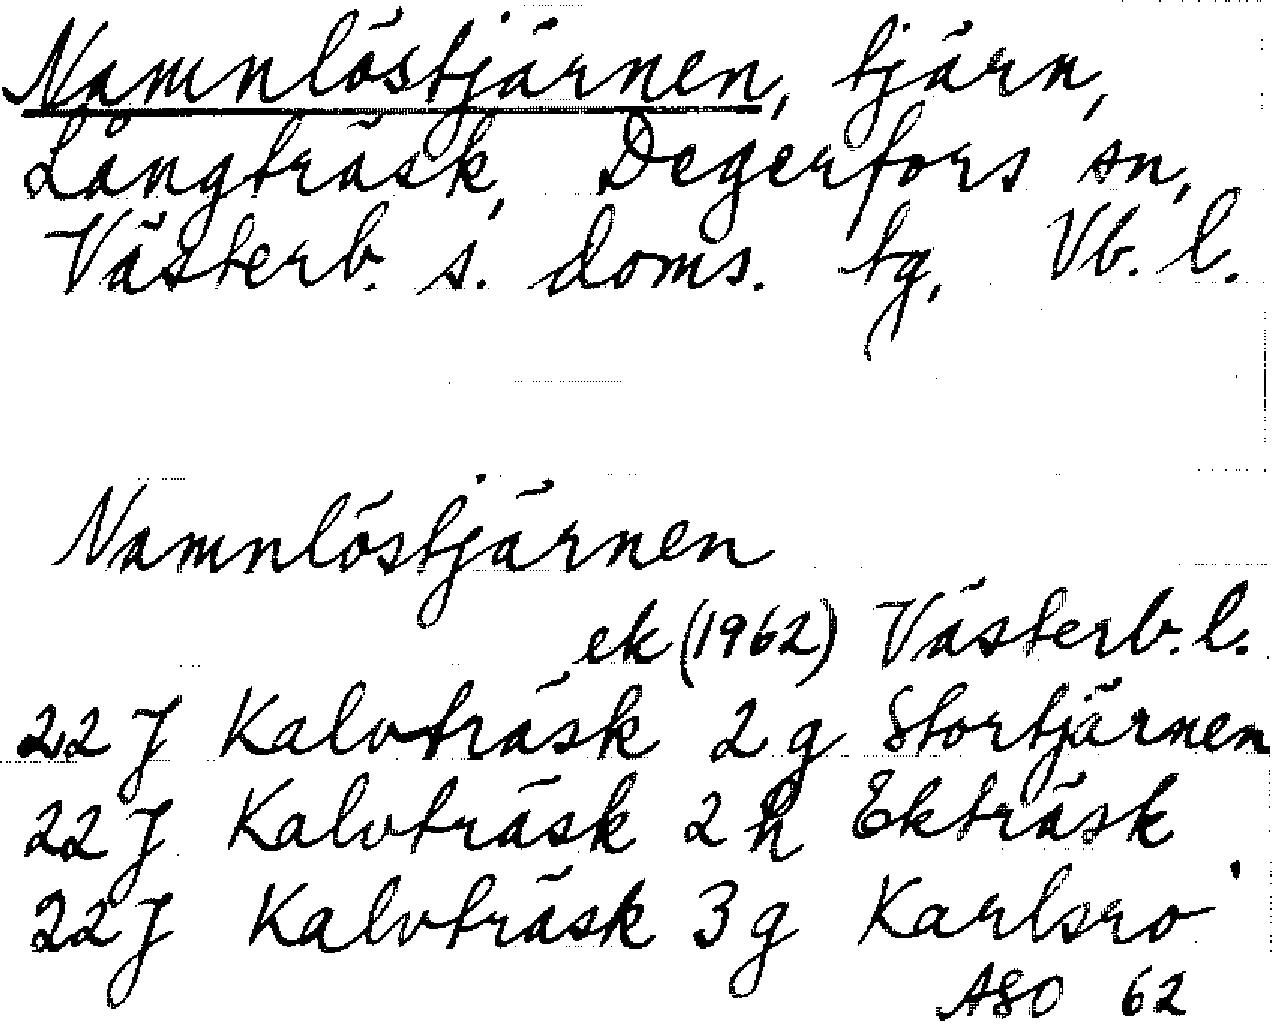 Namnlöstjärnen, tjärn,
Långträsk, Degerfors sn,
Västerb. s. doms. tg, Vb. l.
Namnlöstjärnen
ek (1962) Västerb. l.
22 J Kalvträsk 2 g Stortjärnen
22 J Kalvträsk 2 h Ekträsk
22 J Kalvträsk 3 g Karlsro
ASO 62